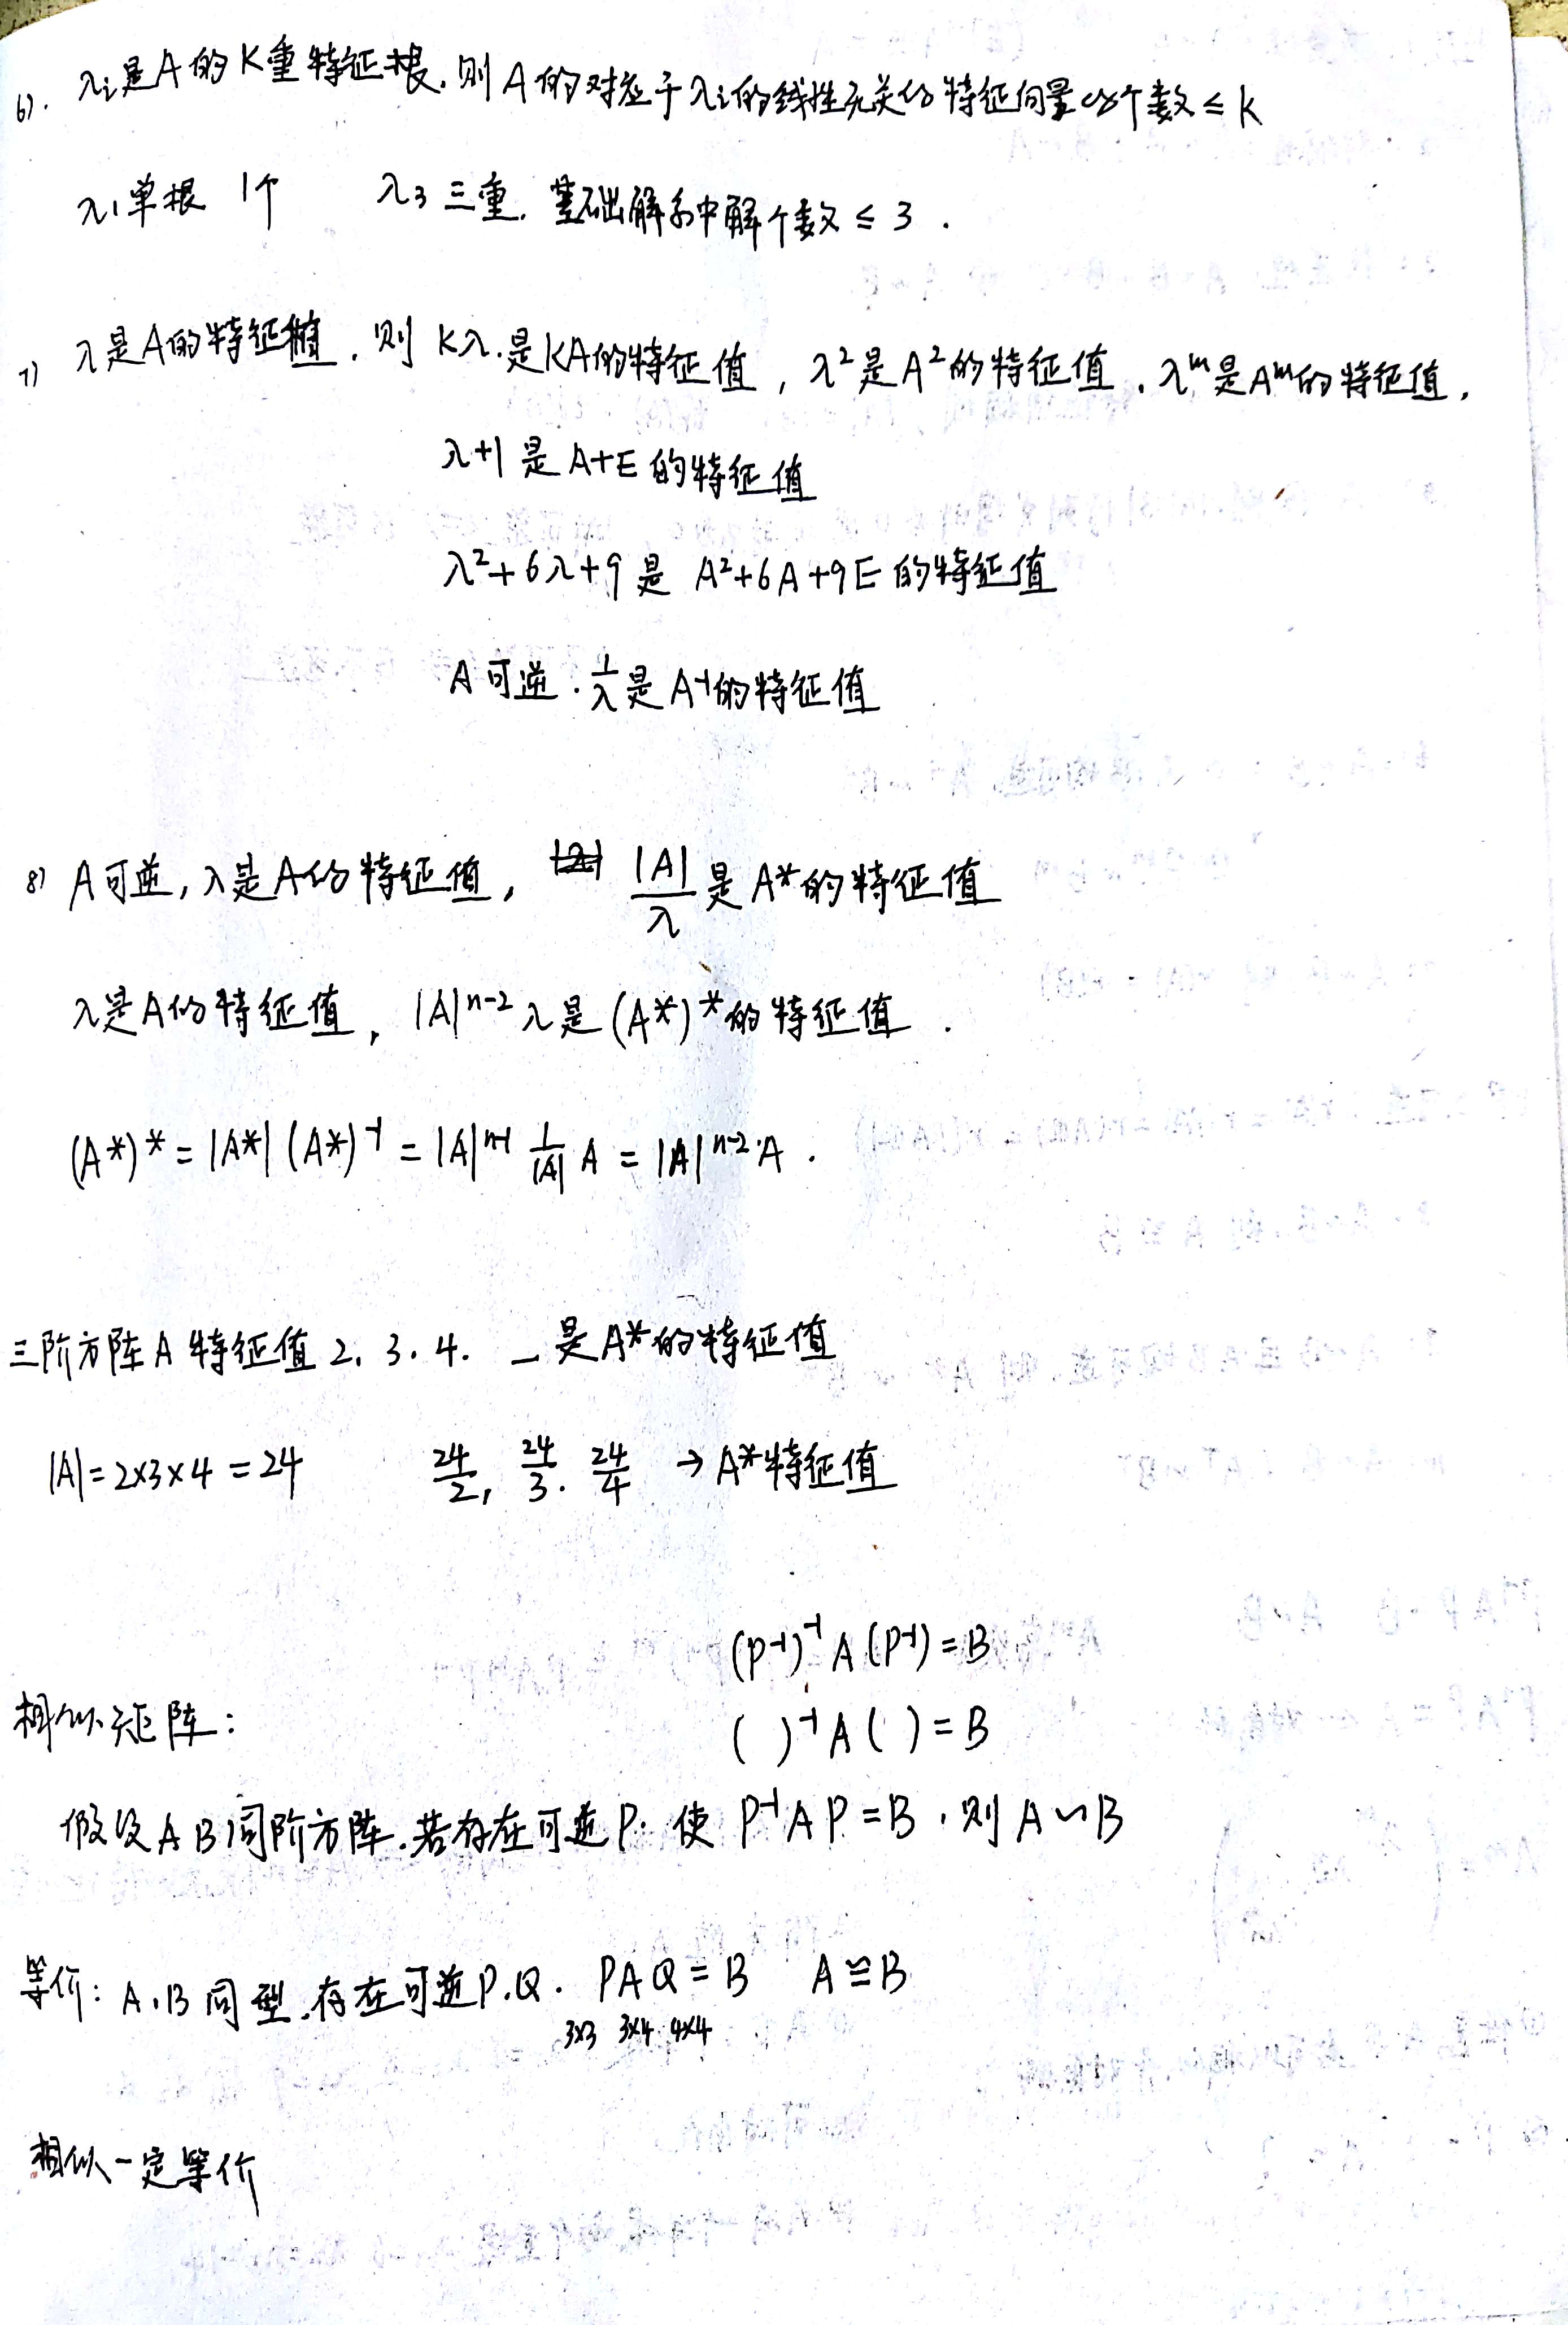 6). λi是A的K重特征根.则A的对应于λi的线性无关的特征向量的个数≤k
λ1单根 1个 λ3三重.基础解系中解个数≤3.
7) λ是A的特征值.则Kλ.是KA的特征值,λ²是A²的特征值.λᵐ是Aᵐ的特征值,
λ+1是A+E的特征值
λ²+6λ+9是 A²+6A+9E的特征值
A可逆.1/λ是A⁻¹的特征值
8) A可逆,λ是A的特征值, |A|/λ是A*的特征值
λ是A的特征值,|A|ⁿ⁻²λ是(A*)*的特征值.
(A*)*=|A*|(A*)⁻¹=|A|ⁿ⁻¹ 1/|A| A=|A|ⁿ⁻²·A.
三阶方阵A特征值2.3.4. _是A*的特征值
|A|=2×3×4=24 24/2, 24/3. 24/4 →A*特征值
(P⁻¹)⁻¹A(P⁻¹)=B
相似矩阵:
( )⁻¹A( )=B
假设A B同阶方阵.若存在可逆P.使 P⁻¹AP=B,则A∽B
等价:A.B同型.存在可逆P.Q. PAQ=B A≌B
3×3 3×4 4×4
相似一定等价